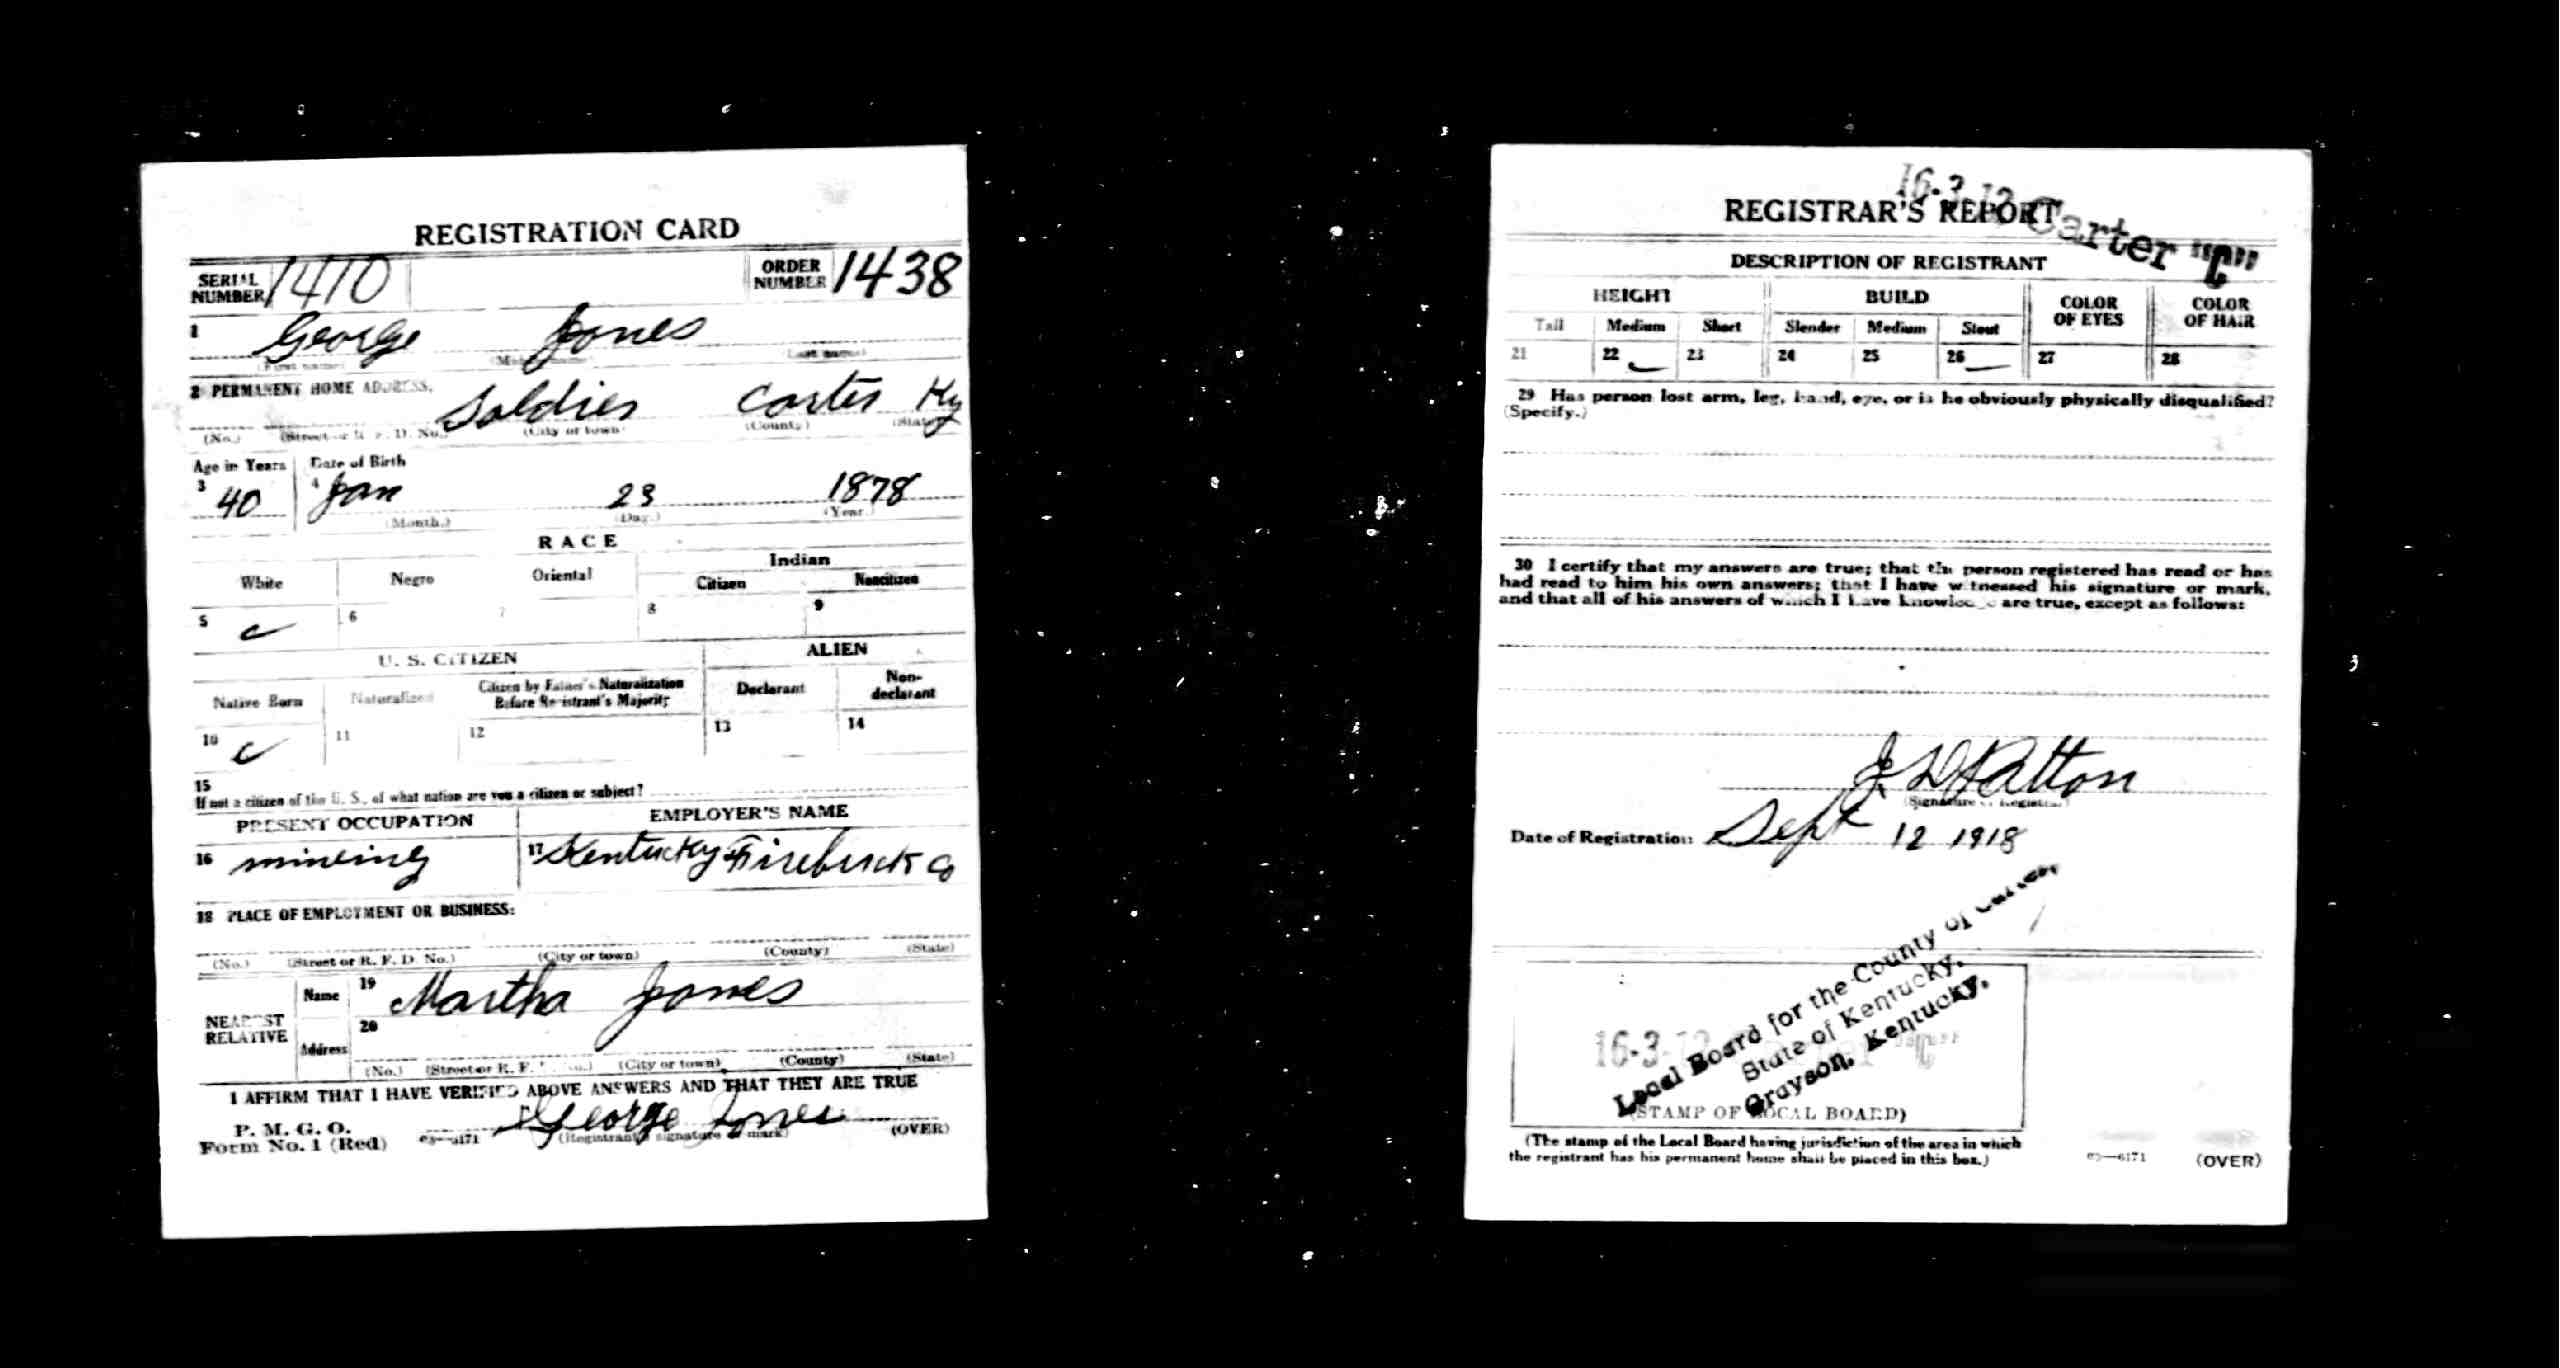 REGISTRATION CARD
SERIAL NUMBER 1410
ORDER NUMBER 1438
1 George Jones
(First name) (Middle name) (Last name)
2 PERMANENT HOME ADDRESS.
Soldier Carter Ky
(No.) (Street or R. F. D. No.) (City or town) (County) (State)
Age in Years Date of Birth
3 40 4 Jan 23 1878
(Month.) (Day.) (Year.)
RACE
White Negro Oriental Indian
Citizen Noncitizen
5 6 7 8 9
U. S. CITIZEN ALIEN
Native Born Naturalized Citizen by Father's Naturalization Before Registrant's Majority Declarant Non-declarant
10 11 12 13 14
15
If not a citizen of the U. S., of what nation are you a citizen or subject?
PRESENT OCCUPATION EMPLOYER'S NAME
16 mining 17 Kentucky Firebrick Co
18 PLACE OF EMPLOYMENT OR BUSINESS:
(No.) (Street or R. F. D. No.) (City or town) (County) (State)
NEAREST RELATIVE
Name 19 Martha Jones
Address 20
(No.) (Street or R. F. D. No.) (City or town) (County) (State)
I AFFIRM THAT I HAVE VERIFIED ABOVE ANSWERS AND THAT THEY ARE TRUE
P. M. G. O.
Form No. 1 (Red) 03—6171 George Jones (OVER)
(Registrant's signature or mark)
16-3-12 Carter "C"
REGISTRAR'S REPORT
DESCRIPTION OF REGISTRANT
HEIGHT BUILD COLOR OF EYES COLOR OF HAIR
Tall Medium Short Slender Medium Stout
21 22 23 24 25 26 27 28
29 Has person lost arm, leg, hand, eye, or is he obviously physically disqualified?
(Specify.)
30 I certify that my answers are true; that the person registered has read or has
had read to him his own answers; that I have witnessed his signature or mark,
and that all of his answers of which I have knowledge are true, except as follows:
(Signature of Registrar)
Date of Registration: Sept 12 1918
Local Board for the County of Carter,
State of Kentucky,
Grayson, Kentucky.
16-3-12 "C"
(STAMP OF LOCAL BOARD)
(The stamp of the Local Board having jurisdiction of the area in which
the registrant has his permanent home shall be placed in this box.)
03—6171 (OVER)